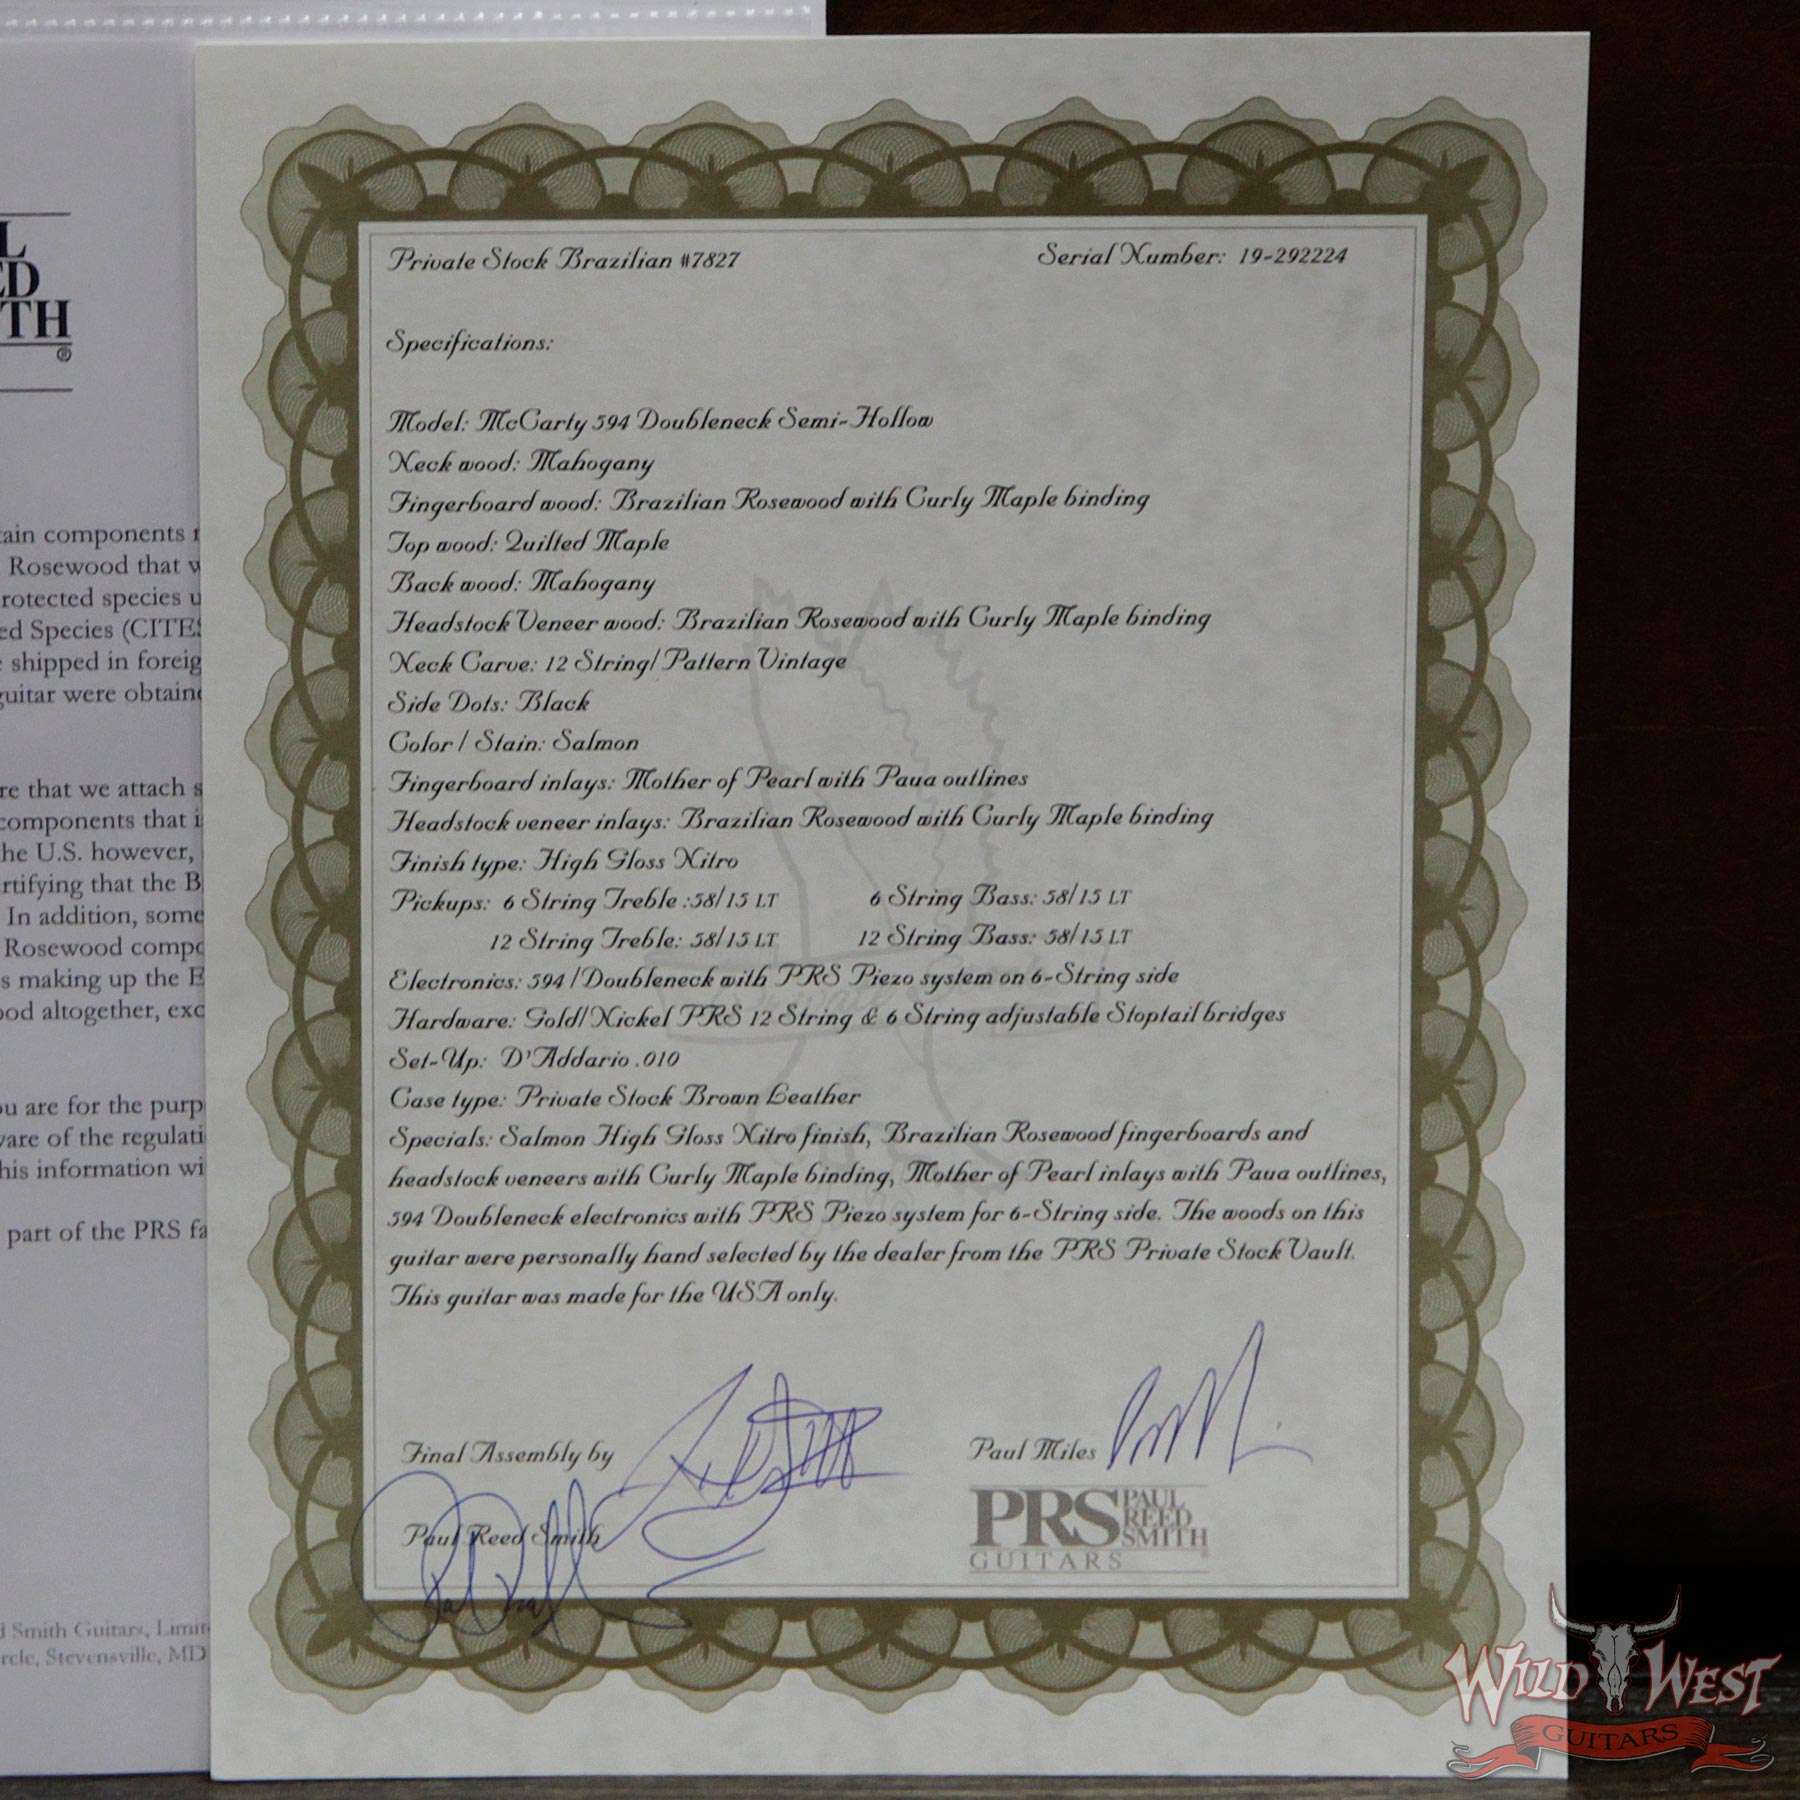 L
ED
TH
®
tain components
Rosewood that
rotected species
ed Species (CITES
shipped in foreig
guitar were obtain
re that we attach
components that
he U.S. however,
rtifying that the B
In addition, some
Rosewood compo
s making up the
ood altogether, exc
ou are for the purp
ware of the regulati
his information wi
part of the PRS fa
d Smith Guitars, Limit
rcle, Stevensville, MD
Private Stock Brazilian #7827 Serial Number: 19-292224
Specifications:
Model: McCarty 594 Doubleneck Semi-Hollow
Neck wood: Mahogany
Fingerboard wood: Brazilian Rosewood with Curly Maple binding
Top wood: Quilted Maple
Back wood: Mahogany
Headstock Veneer wood: Brazilian Rosewood with Curly Maple binding
Neck Carve: 12 String/ Pattern Vintage
Side Dots: Black
Color / Stain: Salmon
Fingerboard inlays: Mother of Pearl with Paua outlines
Headstock veneer inlays: Brazilian Rosewood with Curly Maple binding
Finish type: High Gloss Nitro
Pickups: 6 String Treble :58/15 LT 6 String Bass: 58/15 LT
12 String Treble: 58/15 LT 12 String Bass: 58/15 LT
Electronics: 594 / Doubleneck with PRS Piezo system on 6-String side
Hardware: Gold/Nickel PRS 12 String & 6 String adjustable Stoptail bridges
Set-Up: D'Addario .010
Case type: Private Stock Brown Leather
Specials: Salmon High Gloss Nitro finish, Brazilian Rosewood fingerboards and
headstock veneers with Curly Maple binding, Mother of Pearl inlays with Paua outlines,
594 Doubleneck electronics with PRS Piezo system for 6-String side. The woods on this
guitar were personally hand selected by the dealer from the PRS Private Stock Vault.
This guitar was made for the USA only.
Final Assembly by
Paul Miles
Paul Reed Smith
PRS PAUL REED SMITH
GUITARS
WILD WEST
GUITARS